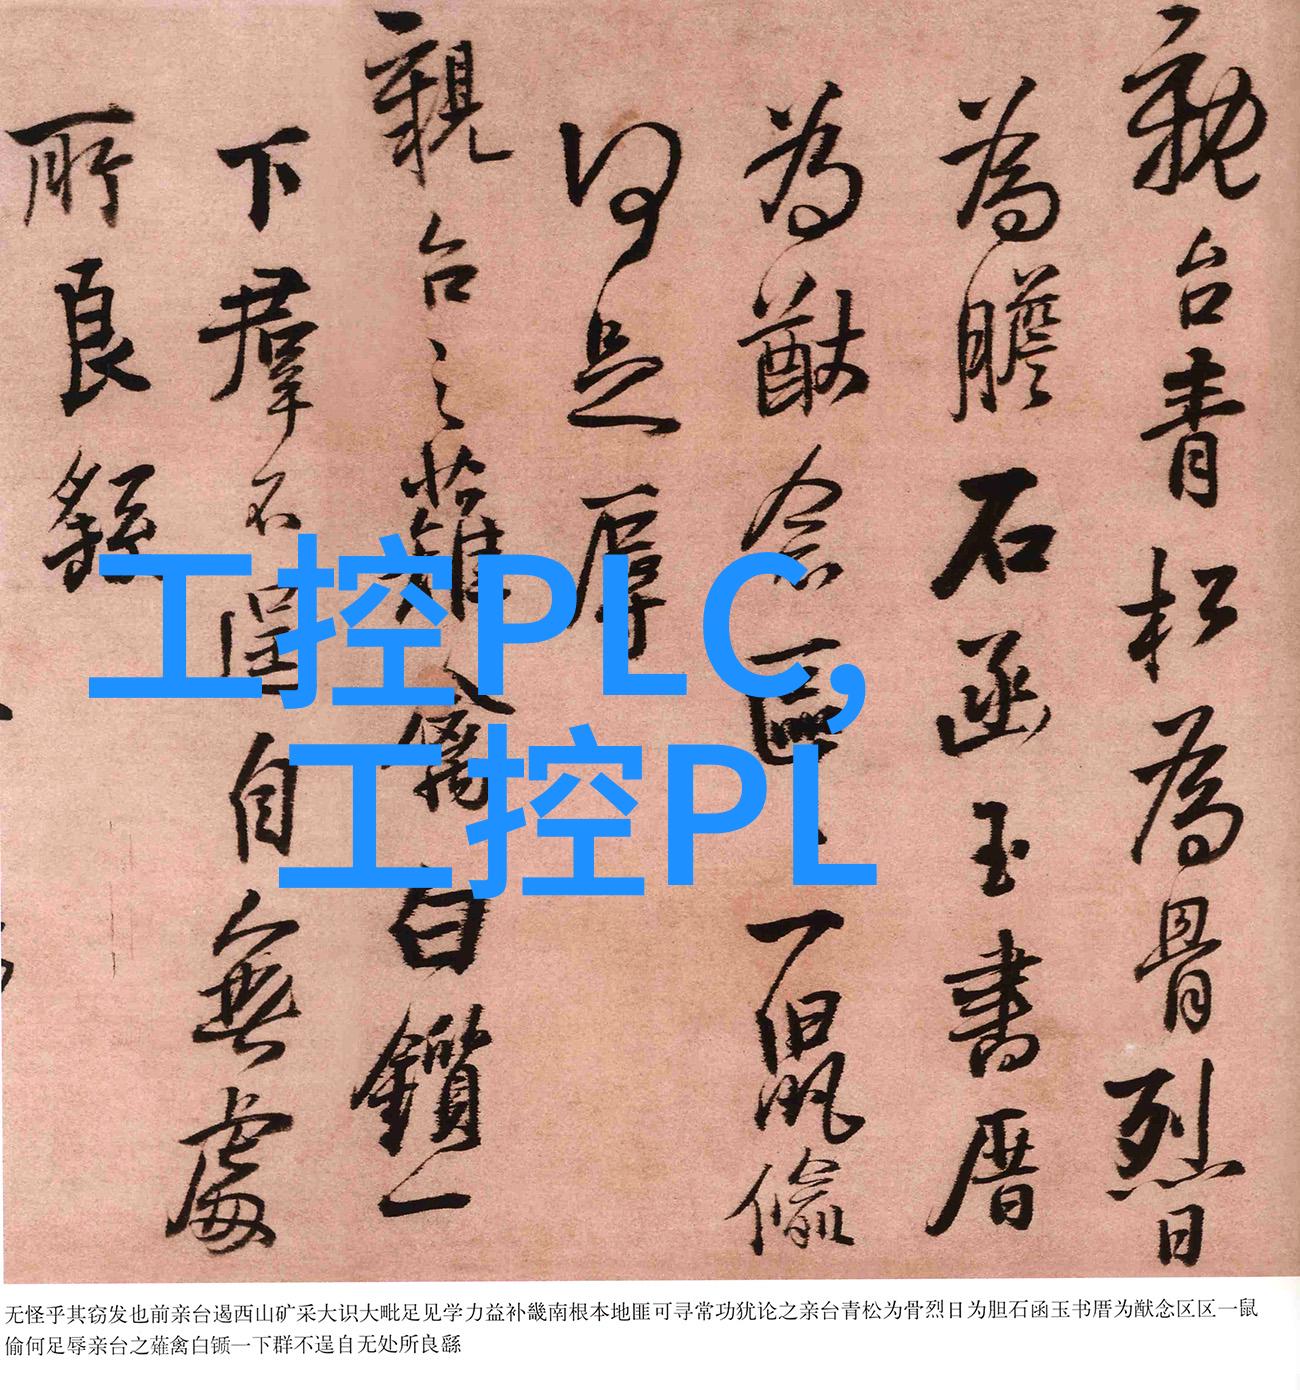 親台青松為骨烈日
為膽石函玉書厝
為猷念區區一鼠偷
何足辱
親台之薙禽白鑕一
下羣不逞自無處
所良繇
工控PLC,
工控PL
无怪乎其窃发也前亲台遏西山矿采大识大毗足见学力益补畿南根本地匪可寻常功犹论之亲台青松为骨烈日为胆石函玉书厝为猷念区区一鼠
偷何足辱亲台之薙禽白锧一下群不逞自无处所良繇